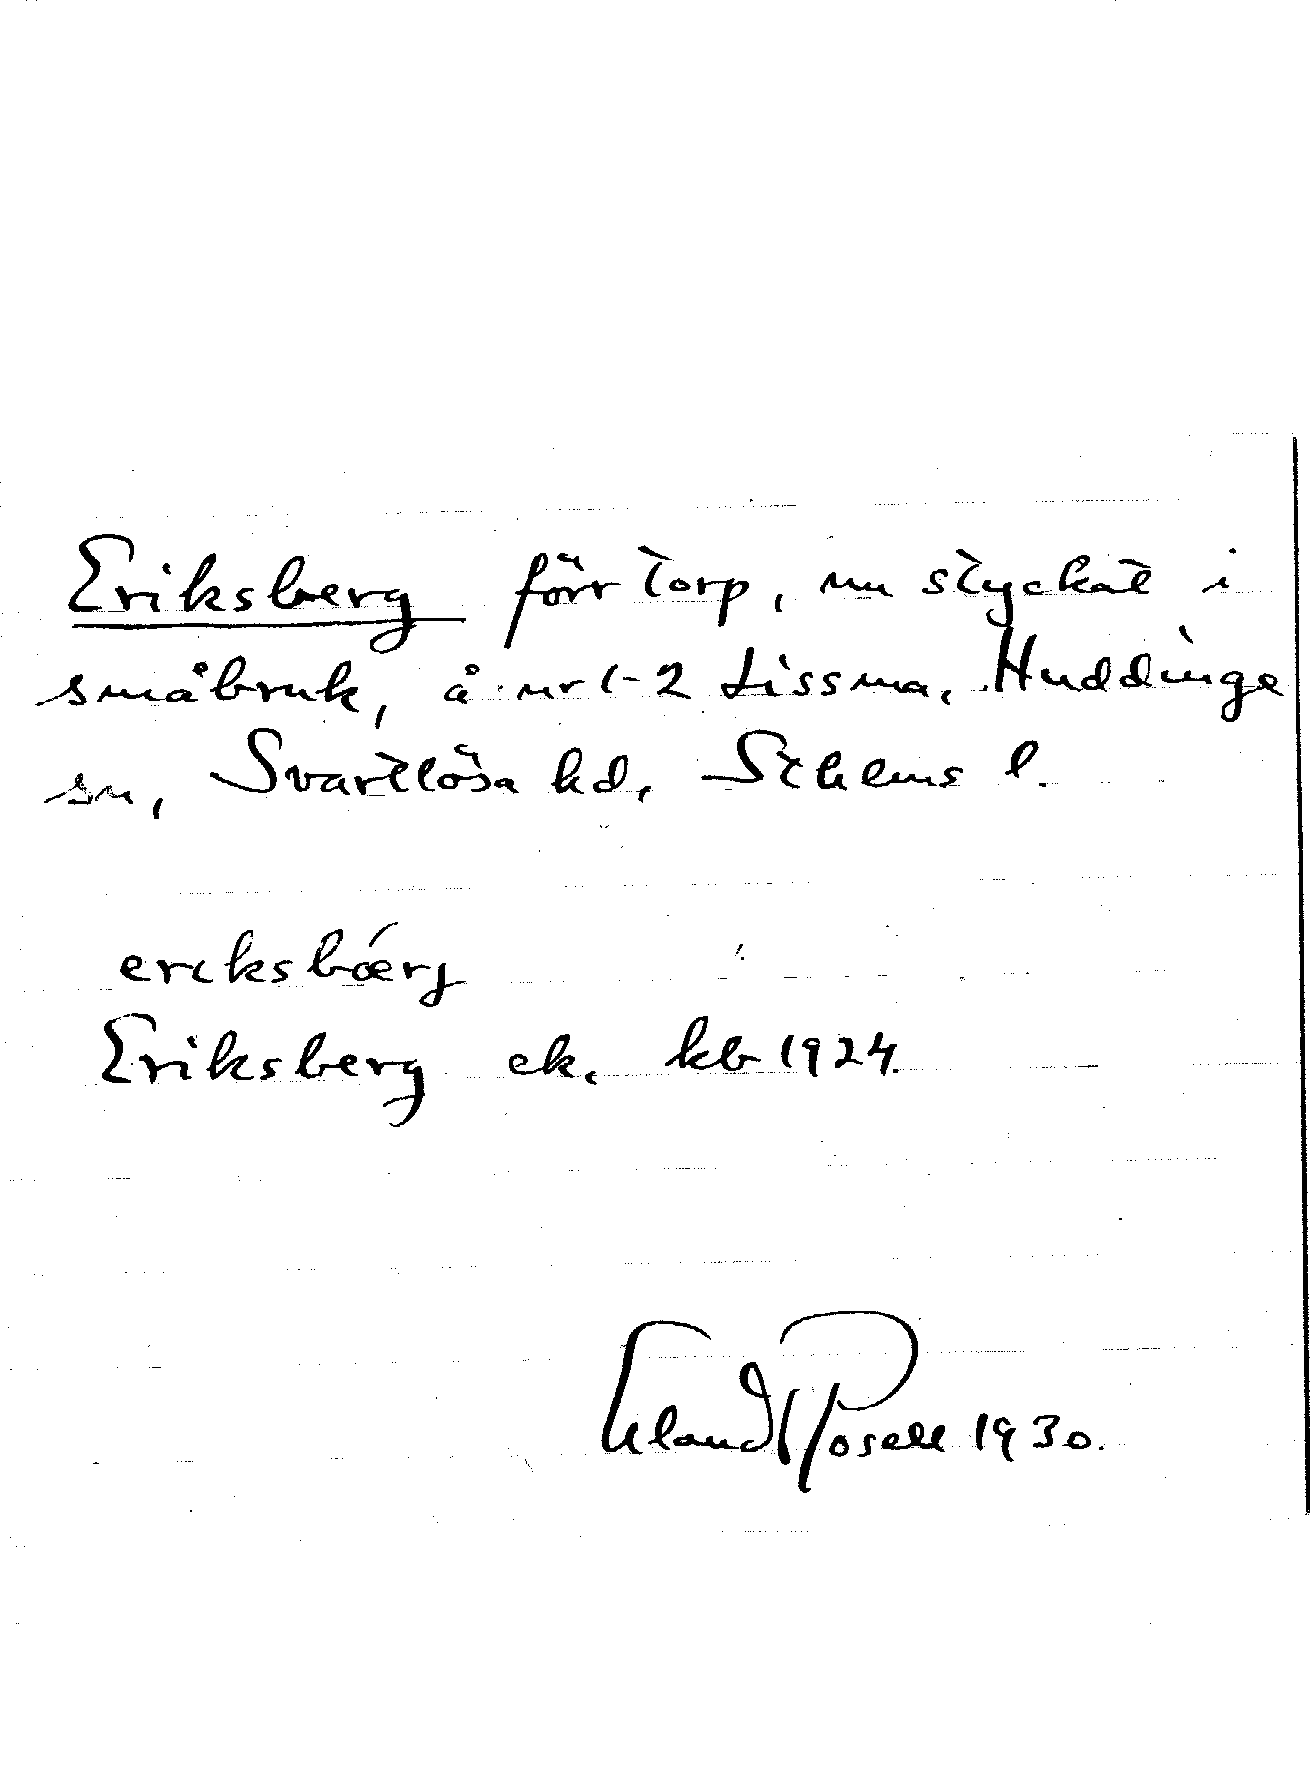 Eriksberg förr torp, nu styckat i
småbruk, å nr 1-2 Lissma, Huddinge
sn, Svartlösa hd, Sthlms l.
ericksbærj
Eriksberg ek. kb 1924.
Erland Rosell 1930.